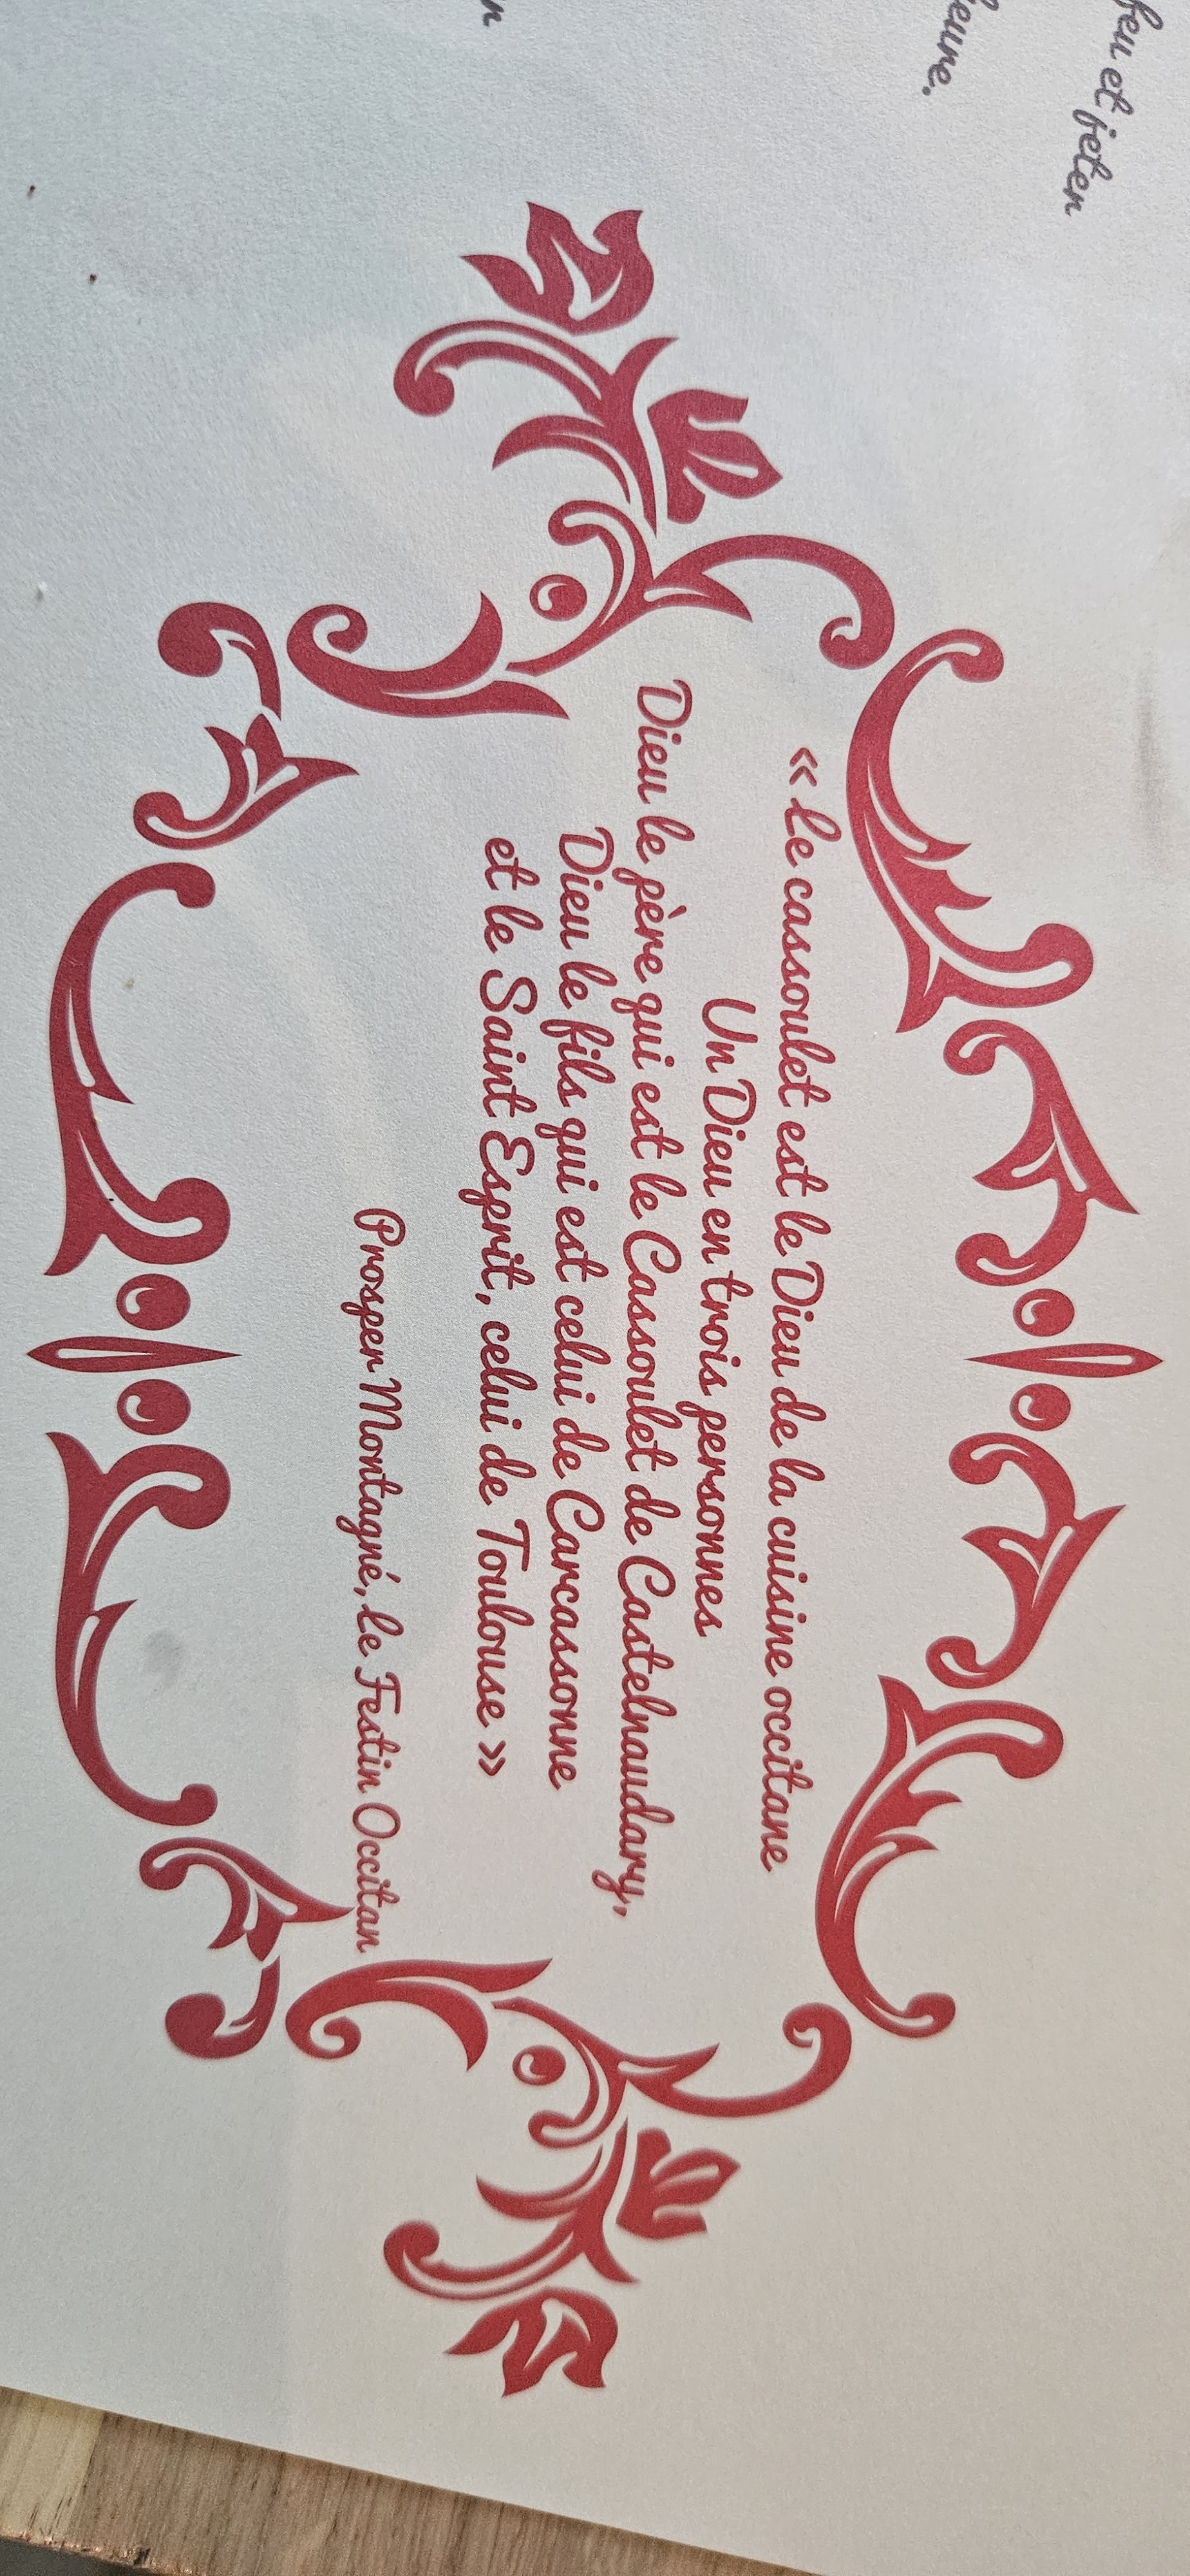 feu et jeter
« Le cassoulet est le Dieu de la cuisine occitane
Un Dieu en trois personnes
Dieu le père qui est le Cassoulet de Castelnaudary,
Dieu le fils qui est celui de Carcassonne
et le Saint Esprit, celui de Toulouse »
Prosper Montagné, le Festin Occitan